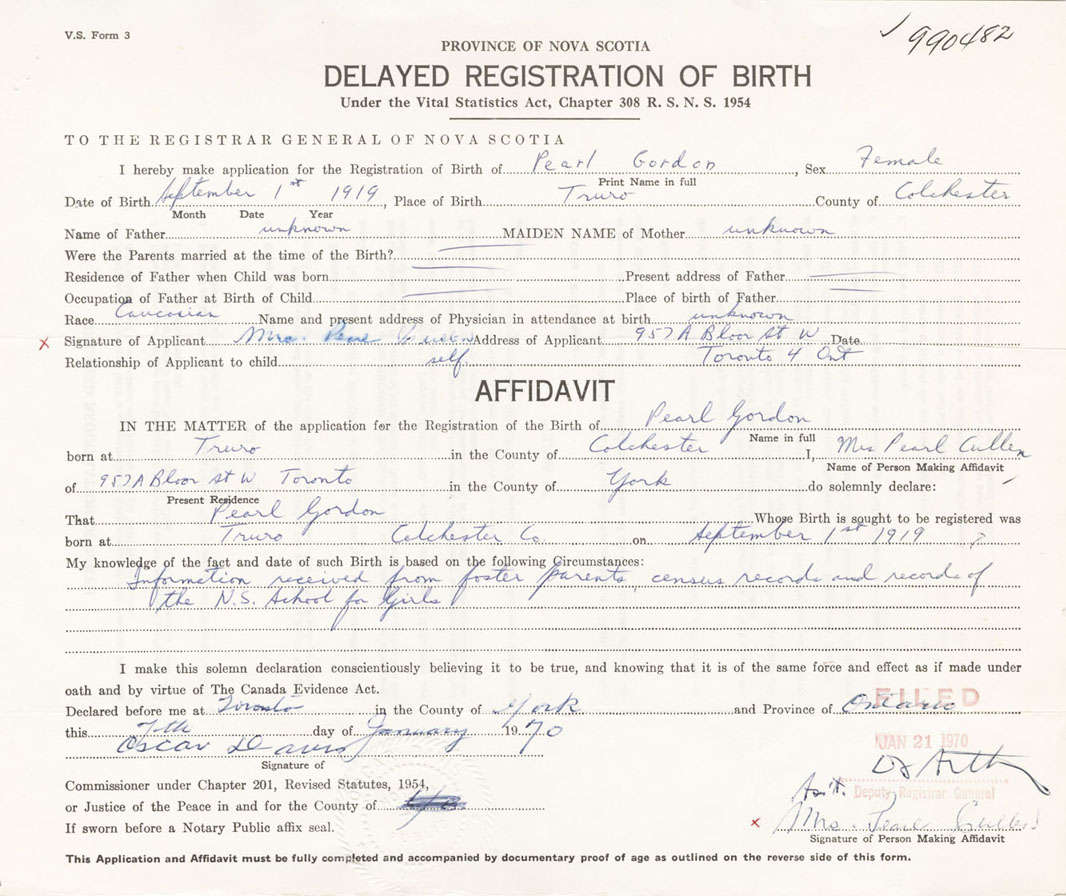 V.S. Form 3
990482
PROVINCE OF NOVA SCOTIA
DELAYED REGISTRATION OF BIRTH
Under the Vital Statistics Act, Chapter 308 R. S. N. S. 1954
TO THE REGISTRAR GENERAL OF NOVA SCOTIA
I hereby make application for the Registration of Birth of Pearl Gordon, Sex Female
Print Name in full
Date of Birth September 1st 1919, Place of Birth Truro County of Colchester
Month Date Year
Name of Father unknown MAIDEN NAME of Mother unknown
Were the Parents married at the time of the Birth?
Residence of Father when Child was born Present address of Father
Occupation of Father at Birth of Child Place of birth of Father
Race Caucasian Name and present address of Physician in attendance at birth unknown
x Signature of Applicant Mrs. Pearl Cullen Address of Applicant 957A Bloor St W Date
Relationship of Applicant to child self Toronto 4 Ont
AFFIDAVIT
IN THE MATTER of the application for the Registration of the Birth of Pearl Gordon
Name in full
born at Truro in the County of Colchester I, Mrs Pearl Cullen
Name of Person Making Affidavit
of 957A Bloor St W Toronto in the County of York do solemnly declare:
Present Residence
That Pearl Gordon Whose Birth is sought to be registered was
born at Truro Colchester Co on September 1st 1919 ?
My knowledge of the fact and date of such Birth is based on the following Circumstances:
Information received from foster parents, census records and records of
the N.S. School for Girls
I make this solemn declaration conscientiously believing it to be true, and knowing that it is of the same force and effect as if made under
oath and by virtue of The Canada Evidence Act.
Declared before me at Toronto in the County of York and Province of Ontario
FILED
this 7th day of January 1970
JAN 21 1970
Oscar Davis
Signature of
Commissioner under Chapter 201, Revised Statutes, 1954,
Ass't. Deputy Registrar General
or Justice of the Peace in and for the County of
x Mrs. Pearl Cullen
If sworn before a Notary Public affix seal.
Signature of Person Making Affidavit
This Application and Affidavit must be fully completed and accompanied by documentary proof of age as outlined on the reverse side of this form.